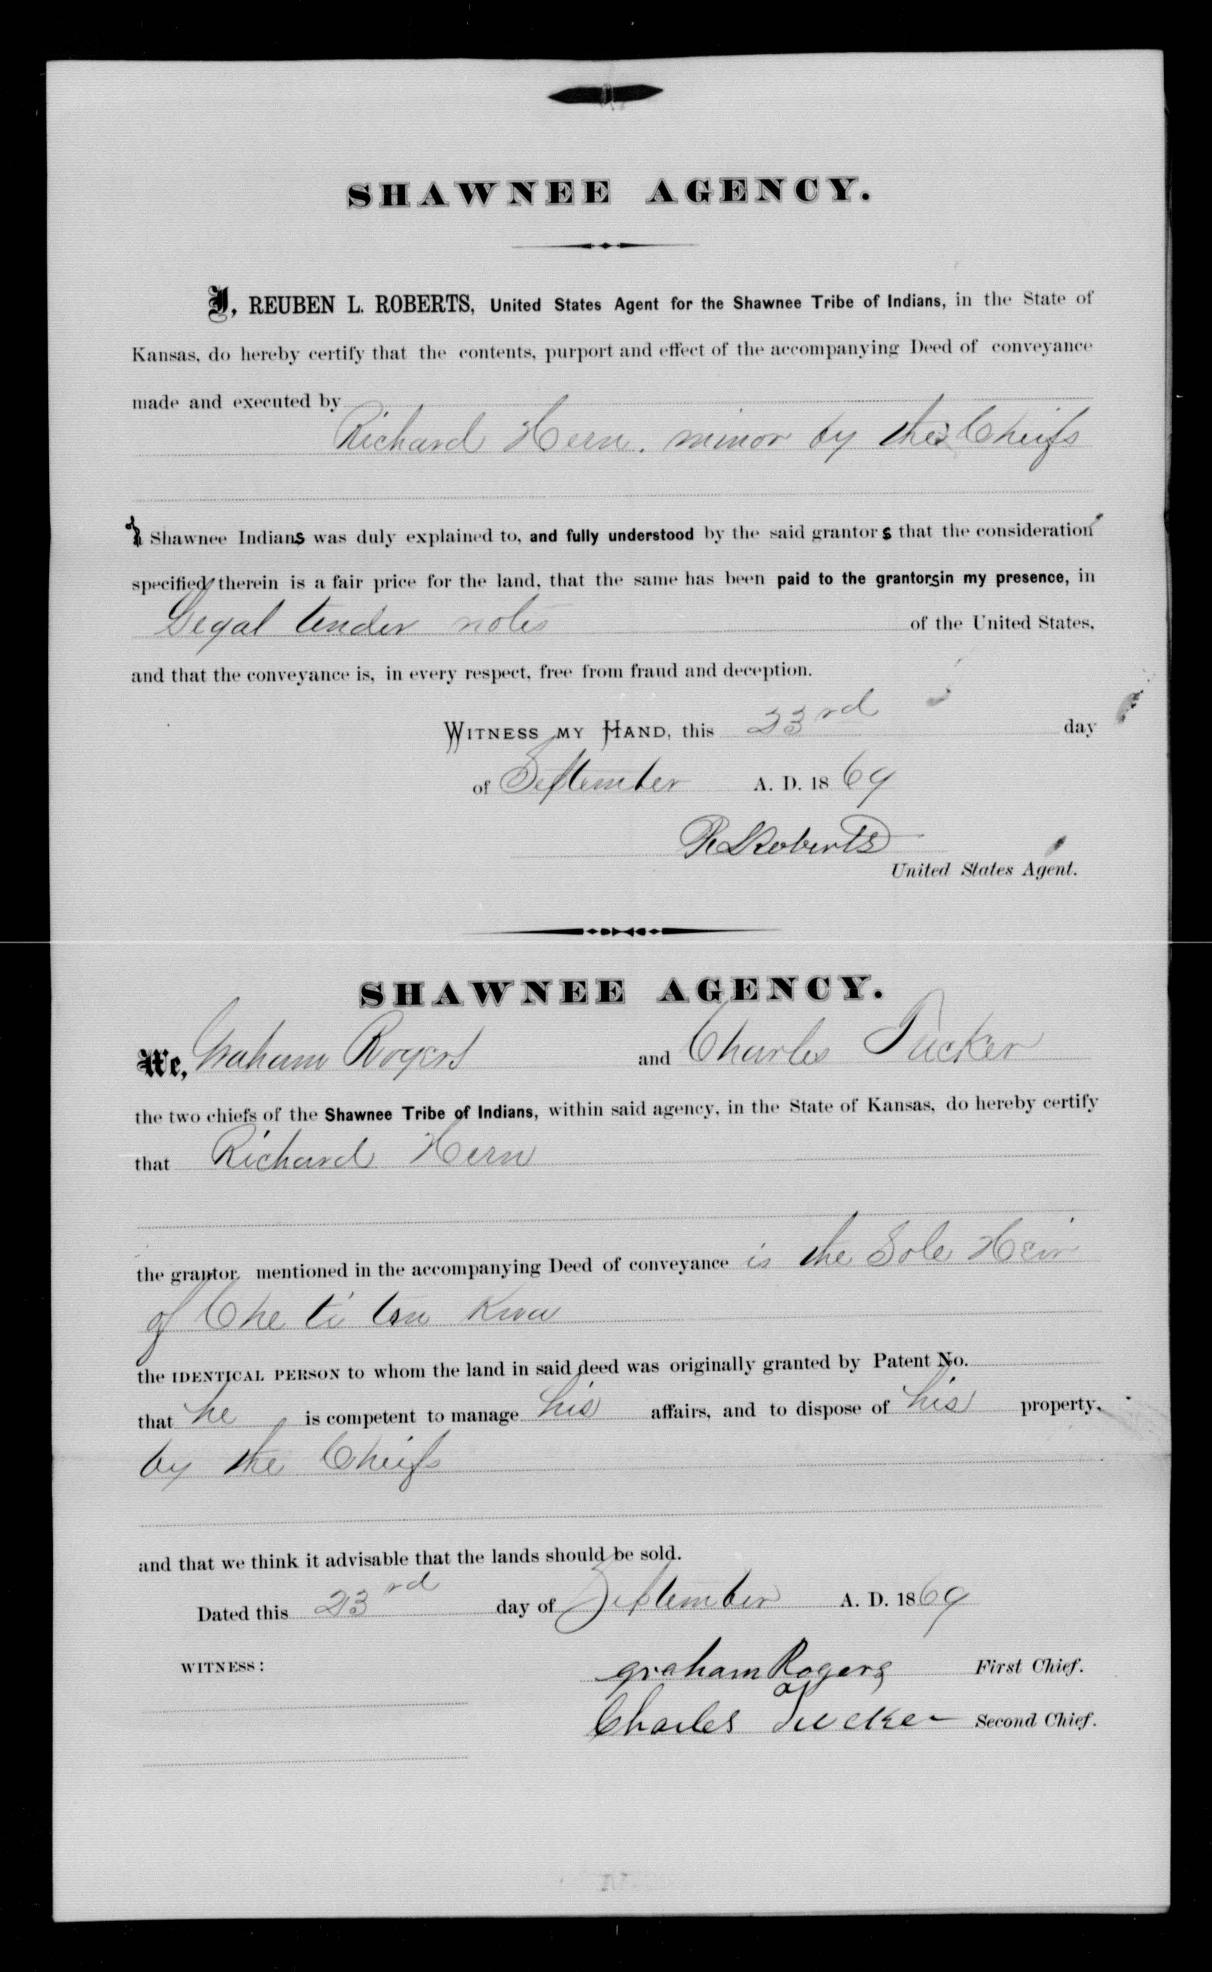 SHAWNEE AGENCY.
I, REUBEN L. ROBERTS, United States Agent for the Shawnee Tribe of Indians, in the State of
Kansas, do hereby certify that the contents, purport and effect of the accompanying Deed of conveyance
made and executed by
Richard Hern. minor by the Cheifs
of Shawnee Indians was duly explained to, and fully understood by the said grantors that the consideration
specified therein is a fair price for the land, that the same has been paid to the grantors in my presence, in
Legal tender notes of the United States,
and that the conveyance is, in every respect, free from fraud and deception.
WITNESS MY HAND, this 23rd day
of September A. D. 1869
R L Roberts
United States Agent.
SHAWNEE AGENCY.
We, Graham Rogers and Charles Tucker
the two chiefs of the Shawnee Tribe of Indians, within said agency, in the State of Kansas, do hereby certify
that Richard Hern
the grantor mentioned in the accompanying Deed of conveyance is the Sole Heir
of Che ti ton Kwa
the IDENTICAL PERSON to whom the land in said deed was originally granted by Patent No.
that he is competent to manage his affairs, and to dispose of his property,
by the Cheifs
and that we think it advisable that the lands should be sold.
Dated this 23rd day of September A. D. 1869
WITNESS:
graham Rogers First Chief.
Charles Tucker Second Chief.